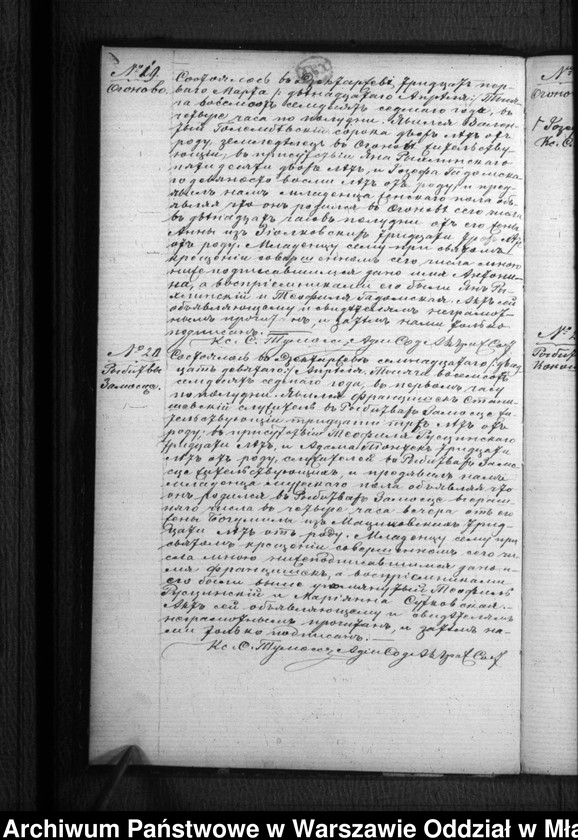 № 19.
Огоново.
Состоялось въ Дектаревѣ тридцать пер-
ваго Марта /: двѣнадцатаго Апрѣля :/ Тыся-
ча восемьсотъ семьдесятъ седмаго года, въ
четыре часа по полудни. Явился Вален-
тый сорока двохъ лѣтъ отъ
роду, земледѣлецъ въ Огоновѣ жительству-
ющій, въ присутствіи Яна
пятидесяти двохъ лѣтъ, и Іозефа Гадомска
восьми лѣтъ отъ роду и пред-
явилъ намъ младенца женскаго пола объ-
являя что онъ родился въ Огоновѣ сего
въ двѣнадцать часовъ полудни отъ его жены
Анны изъ тридцати трехъ лѣтъ
отъ роду. Младенцу сему при святомъ
крещеніи совершенномъ сего числа мною
нижеподписавшимся дано имя Антони-
на, а воспріемниками его были Янъ
и Теофиля Гадомская. Актъ сей
объявляющему и свидѣтелямъ неграмот-
нымъ прочитанъ, и затѣмъ нами только
подписанъ.
Кс. С.
№ 20
Рыбитвы
Замосце.
Состоялось въ Дектаревѣ семнадцатаго /: двад-
цать девятаго :/ Апрѣля. Тысяча восемьсотъ
семьдесятъ седмаго года, въ первомъ часу
по полудни. Явился Францишекъ Стани-
шевскій служитель въ Рыбитвахъ Замосце жи-
тельствующій тридцати трехъ лѣтъ отъ
роду, въ присутствіи Теофиля Русцинскаго
тридцати лѣтъ, и Адама тридцати
лѣтъ отъ роду, служителей въ Рыбитвахъ Замос-
це жительствующихъ, и предявилъ намъ
младенца мужескаго пола объявляя что
онъ родился въ Рыбитвахъ Замосце вчераш-
няго числа въ четыре часа вечера отъ его
жены Богумилы изъ Мацковскихъ трид-
цати лѣтъ отъ роду. Младенцу сему при
святомъ крещеніи совершенномъ сего чи-
сла мною нижеподписавшимся дано и-
мя Францишекъ, а воспріемниками
его были выше упомянутый Теофиль
Русцинскій и Маріянна Сутковская.
Актъ сей объявляющему и свидѣтелямъ
неграмотнымъ прочитанъ, и затѣмъ на-
ми только подписанъ.
Кс. С.
№
Огоно
Кс. С.
№
Рыбит
Archiwum Państwowe w Warszawie Oddział w Mła